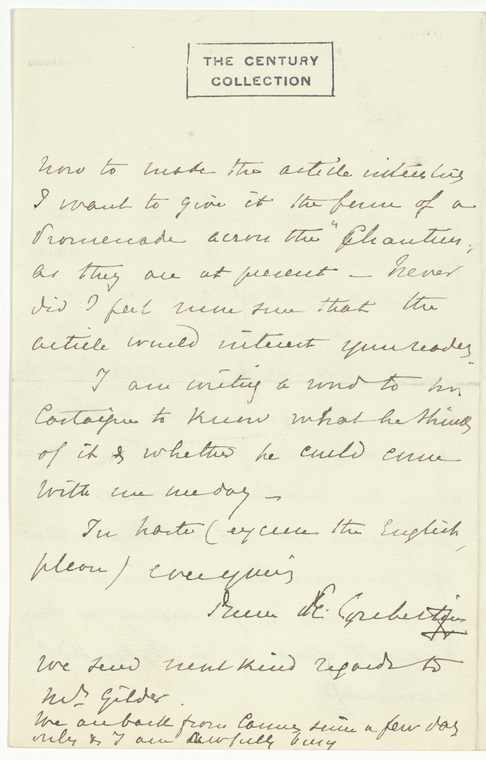 THE CENTURY
COLLECTION
how to make the article interesting
I want to give it the form of a
Promenade across the "Chantiers"
as they are at present — Never
did I feel more sure that the
article would interest your readers
I am writing a word to Mr
Castaigne to know what he thinks
of it & whether he could come
with me one day —
In haste (excuse the English,
please)
Pierre de Coubertin
We send most kind regards to
Mrs Gilder.
We are back from Cannes since a few days
only & I am awfully busy